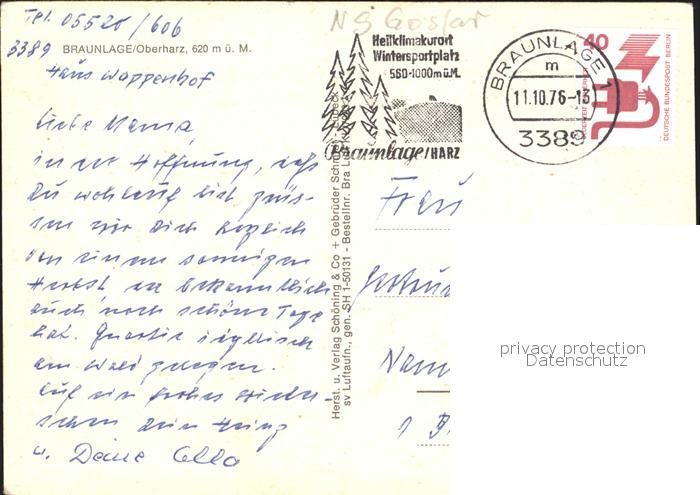 Tel. 05520/606
3389 BRAUNLAGE/Oberharz, 620 m ü. M.
Haus Wappenhof
Liebe Mama,
in der Hoffnung, daß
Du wohlauf bist, grüs-
sen wir Dich herzlich
von einem sonnigen
Herbst, der bekanntlich
auch noch schöne Tage
hat. Quartier idyllisch
am Wald gelegen.
Auf ein frohes Wieder-
sehen Dein Heinz
u. Deine Ella
Herst. u. Verlag Schöning & Co + Gebrüder Schmidt
sv Luftaufn., gen. SH 1-50131 - Bestellnr. Bra
NS Goslar
Heilklimakurort
Wintersportplatz
560-1000m ü.M.
Braunlage/HARZ
BRAUNLAGE 1
m
11.10.76-13
3389
40
DEUTSCHE BUNDESPOST BERLIN
Frau
privacy protection
Datenschutz